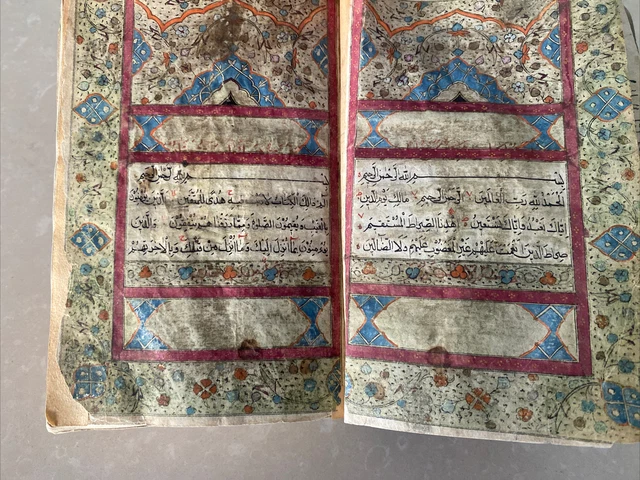 بسم الله الرحمن الرحيم
الحمد لله رب العالمين الرحمن الرحيم مالك يوم الدين
اياك نعبد واياك نستعين اهدنا الصراط المستقيم
صراط الذين انعمت عليهم غير المغضوب عليهم ولا الضالين
بسم الله الرحمن الرحيم
الم ذلك الكتاب لا فيه هدى للمتقين الذين يؤمنون
بالغيب ويقيمون الصلوة ومما رزقناهم ينفقون والذين
يؤمنون بما انزل اليك وما انزل من قبلك وبالاخرة هم